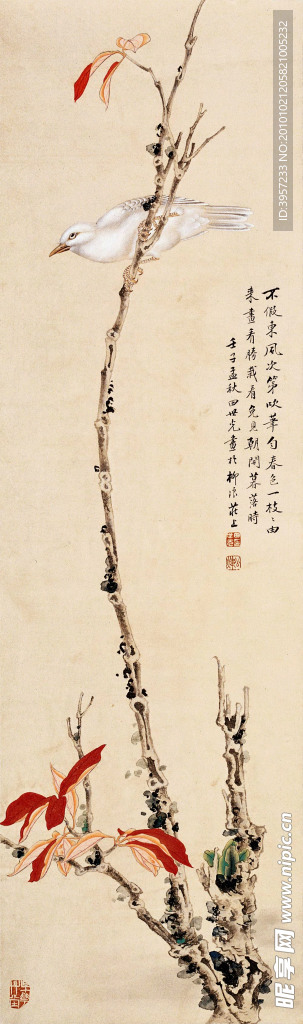 不假东风次第吹笔匀春色一枝々由
来画看胜栽看免见朝开暮落时
壬子孟秋田世光画於柳浪庄上
昵享网 www.nipic.cn
ID:3957233 NO:20101021205821005232